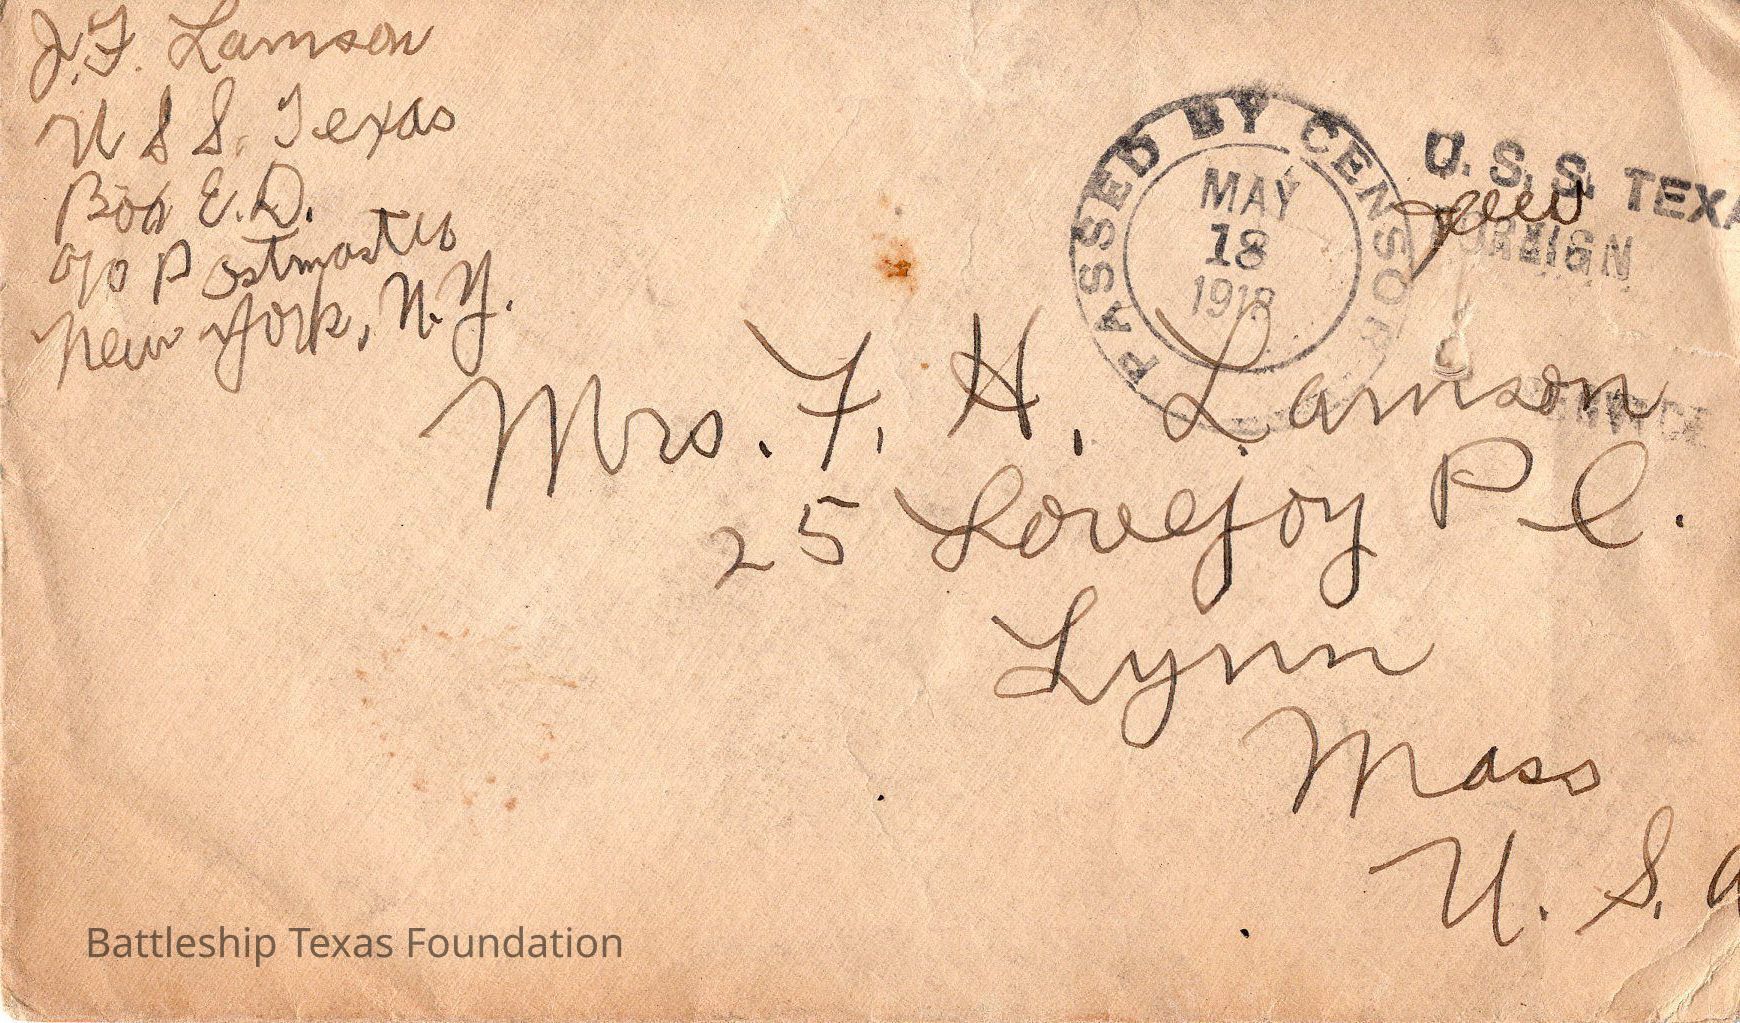 J.F. Lamson
U S S. Texas
Box E.D.
c/o Postmaster
New York, N.Y.
PASSED BY CENSOR
MAY
18
1918
U.S.S. TEXA
FOREIGN
SERVICE
Mrs. F. H. Lamson
25 Lovejoy Pl.
Lynn
Mass
U.S.A
Battleship Texas Foundation